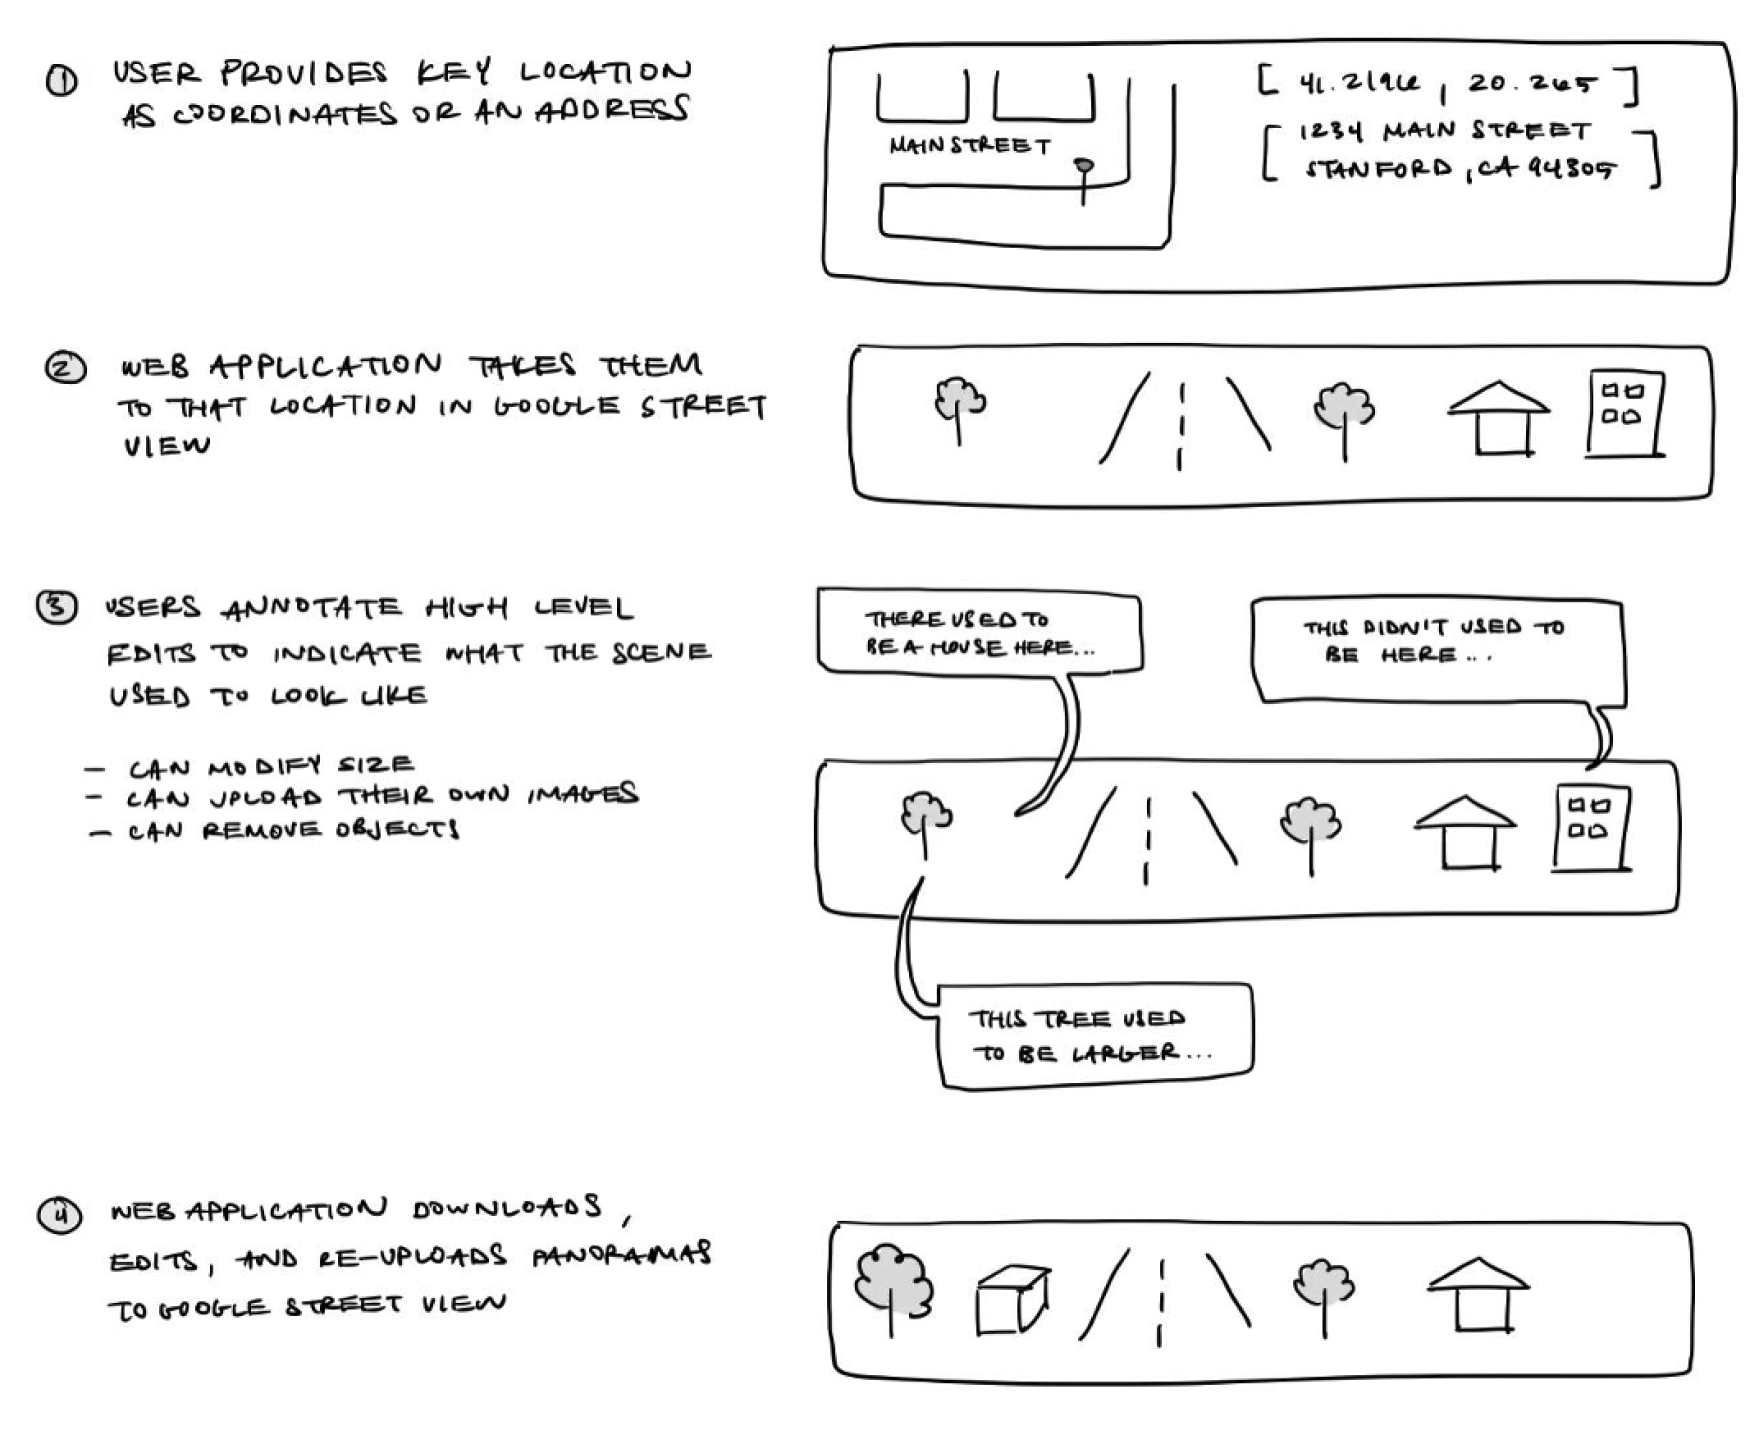 1 USER PROVIDES KEY LOCATION
AS COORDINATES OR AN ADDRESS
MAIN STREET
[ 41.2196 , 20.265 ]
[ 1234 MAIN STREET
STANFORD , CA 94305 ]
2 WEB APPLICATION TAKES THEM
TO THAT LOCATION IN GOOGLE STREET
VIEW
3 USERS ANNOTATE HIGH LEVEL
EDITS TO INDICATE WHAT THE SCENE
USED TO LOOK LIKE
- CAN MODIFY SIZE
- CAN UPLOAD THEIR OWN IMAGES
- CAN REMOVE OBJECTS
THERE USED TO
BE A HOUSE HERE...
THIS DIDN'T USED TO
BE HERE...
THIS TREE USED
TO BE LARGER...
4 WEB APPLICATION DOWNLOADS,
EDITS, AND RE-UPLOADS PANORAMAS
TO GOOGLE STREET VIEW